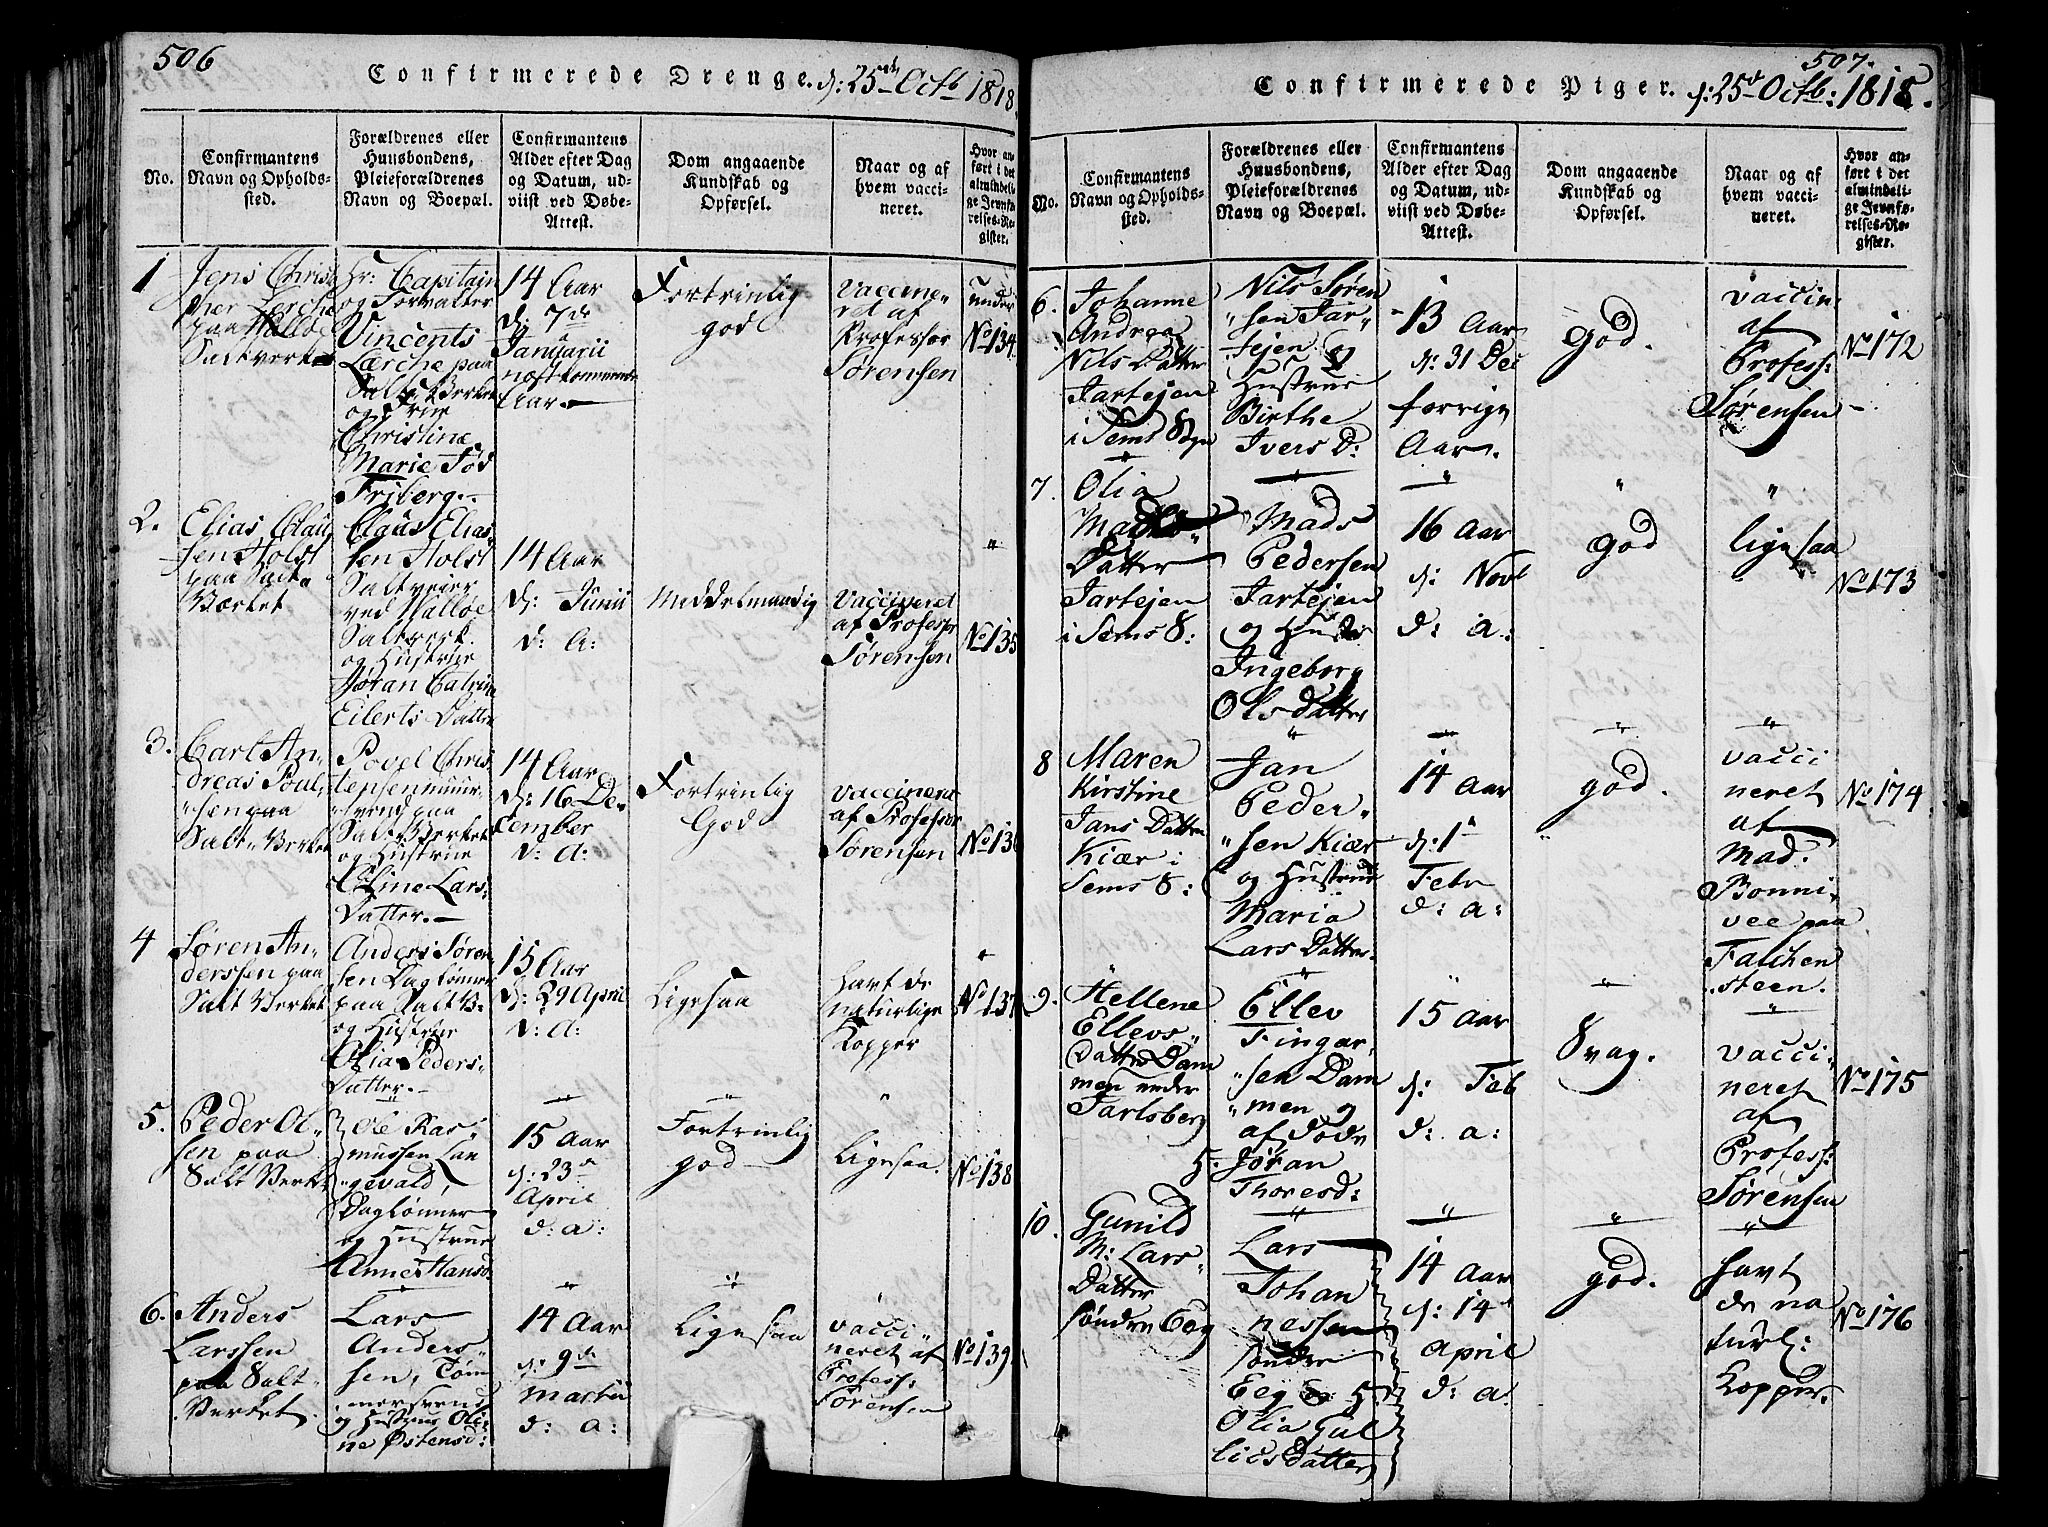 506
Confirmerede Drenge. d: 25de Octb 1818.
No.
Confirmantens
Navn og Opholds-
sted.
Forældrenes eller
Huusbondens,
Pleieforældrenes
Navn og Boepæl.
Confirmantens
Alder efter Dag
og Datum, ud-
viist ved Døbe-
Attest.
Dom angaaende
Kundskab og
Opførsel.
Naar og af
hvem vacci-
neret.
Hvor an-
ført i det
almindeli-
ge Jevnfø-
relses-Re-
gister.
1
Jens Christo
pher Lerche
paa Walløe
Saltverket
Hr: Capitain
og Forvalter
Vincents
Lærche paa
Salt Verket
og Frue
Christine
Marie Fød
Friberg.
14 Aar
d: 7de
Januarii
næstkommende
Aar.
Fortrinlig
god
Vaccine-
ret af
Professor
Sørensen
under
No 134
2.
Elias Clau
sen Holst
paa Salt
Værket
Claus Elias-
sen Holst
Saltveier
ved Walløe
Saltverk
og Hustrue
Jøran Catrine
Eilerts Datter
14 Aar
d: Junii
d: A:
Middelmaadig
Vaccineret
af Professor
Sørensen
No 135
3.
Carl An-
dreas Poul-
sen paa
Salt Verket
Povel Chris
tensen muur-
svend paa
Salt Verket
og Hustrue
Eline Lars-
Datter.
14 Aar
d: 16 De-
cember
d: A:
Fortrinlig
God
Vaccineret
af Professor
Sørensen
No 136
4
Søren An-
derssen paa
Salt Verket
Anders Søren
sen Daglønner
paa Salt V:
og Hustrue
Olia Peders-
Datter.
15 Aar
d: 29 April
d: A:
Ligesaa
Havt de
naturlige
Kopper
No 137
5.
Peder Ol-
sen paa
Salt Verket
Ole Ras-
mussen Lan
gevald,
Daglønner
og Hustrue
Anne Hansd:
15 Aar
d: 23de
April
d: a:
Fortrinlig
god
Ligesaa.
No 138
6.
Anders
Larssen
paa Salt-
Verket.
Lars
Anders-
sen, Tøm
mersvend
og Hustrue Oli-
ne Østensd:
14 Aar
d: 9de
Martii
d: a:
Ligesaa
vacci-
neret af
Profess:
Sørensen
No 139
507.
Confirmerede Piger. d: 25de Octb: 1818.
No.
Confirmantens
Navn og Opholds-
sted.
Forældrenes eller
Huusbondens,
Pleieforældrenes
Navn og Boepæl.
Confirmantens
Alder efter Dag
og Datum, ud-
viist ved Døbe-
Attest.
Dom angaaende
Kundskab og
Opførsel.
Naar og af
hvem vacci-
neret.
Hvor an-
ført i det
almindeli-
ge Jevnfø-
relses-Re-
gister.
6.
Johanne
Andrea
Nils Datter
Jarteien
i Sems Sogn
Nils Søren
sen Jar-
tejen og
Hustrue
Birthe
Ivers D:
13 Aar
d: 31 Dec
forrige
Aar.
God.
vaccin
af
Profess:
Sørensen
No 172
7.
Olia
Mads
Datter
Jartejen
i Sems S:
Mads
Pedersen
Jartejen
og Hustrue
Ingeborg
Olsdatter
16 Aar
d: Novb
d: a:
god
ligesaa
No 173
8
Maren
Kirstine
Jans Datter
Kiær i
Sems S:
Jan
Peder-
sen Kiær
og Hustrue
Maria
Lars Datter.
14 Aar
d: 1
Febr
d: a:
god.
vacci
neret
af
Mad.
Bonni-
vee paa
Falchen
steen.
No 174
9.
Hellene
Ellevs-
datter Dam
men under
Jarlsberg
Ellev
Fingar-
sen Dam
men og
afdøde
H. Jøran
Thoresd:
15 Aar
d: Feb
d: a:
Svag.
vacci-
neret
af
Profess:
Sørensen
No 175
10.
Gunild
M: Lars-
Datter
søndre Eeg
Lars
Johan
nessen
søndre
Eeg og H:
Olia Gul
licsdatter
14 Aar
d: 14
April
d: a
god.
havt
de na
turl:
Kopper.
No 176